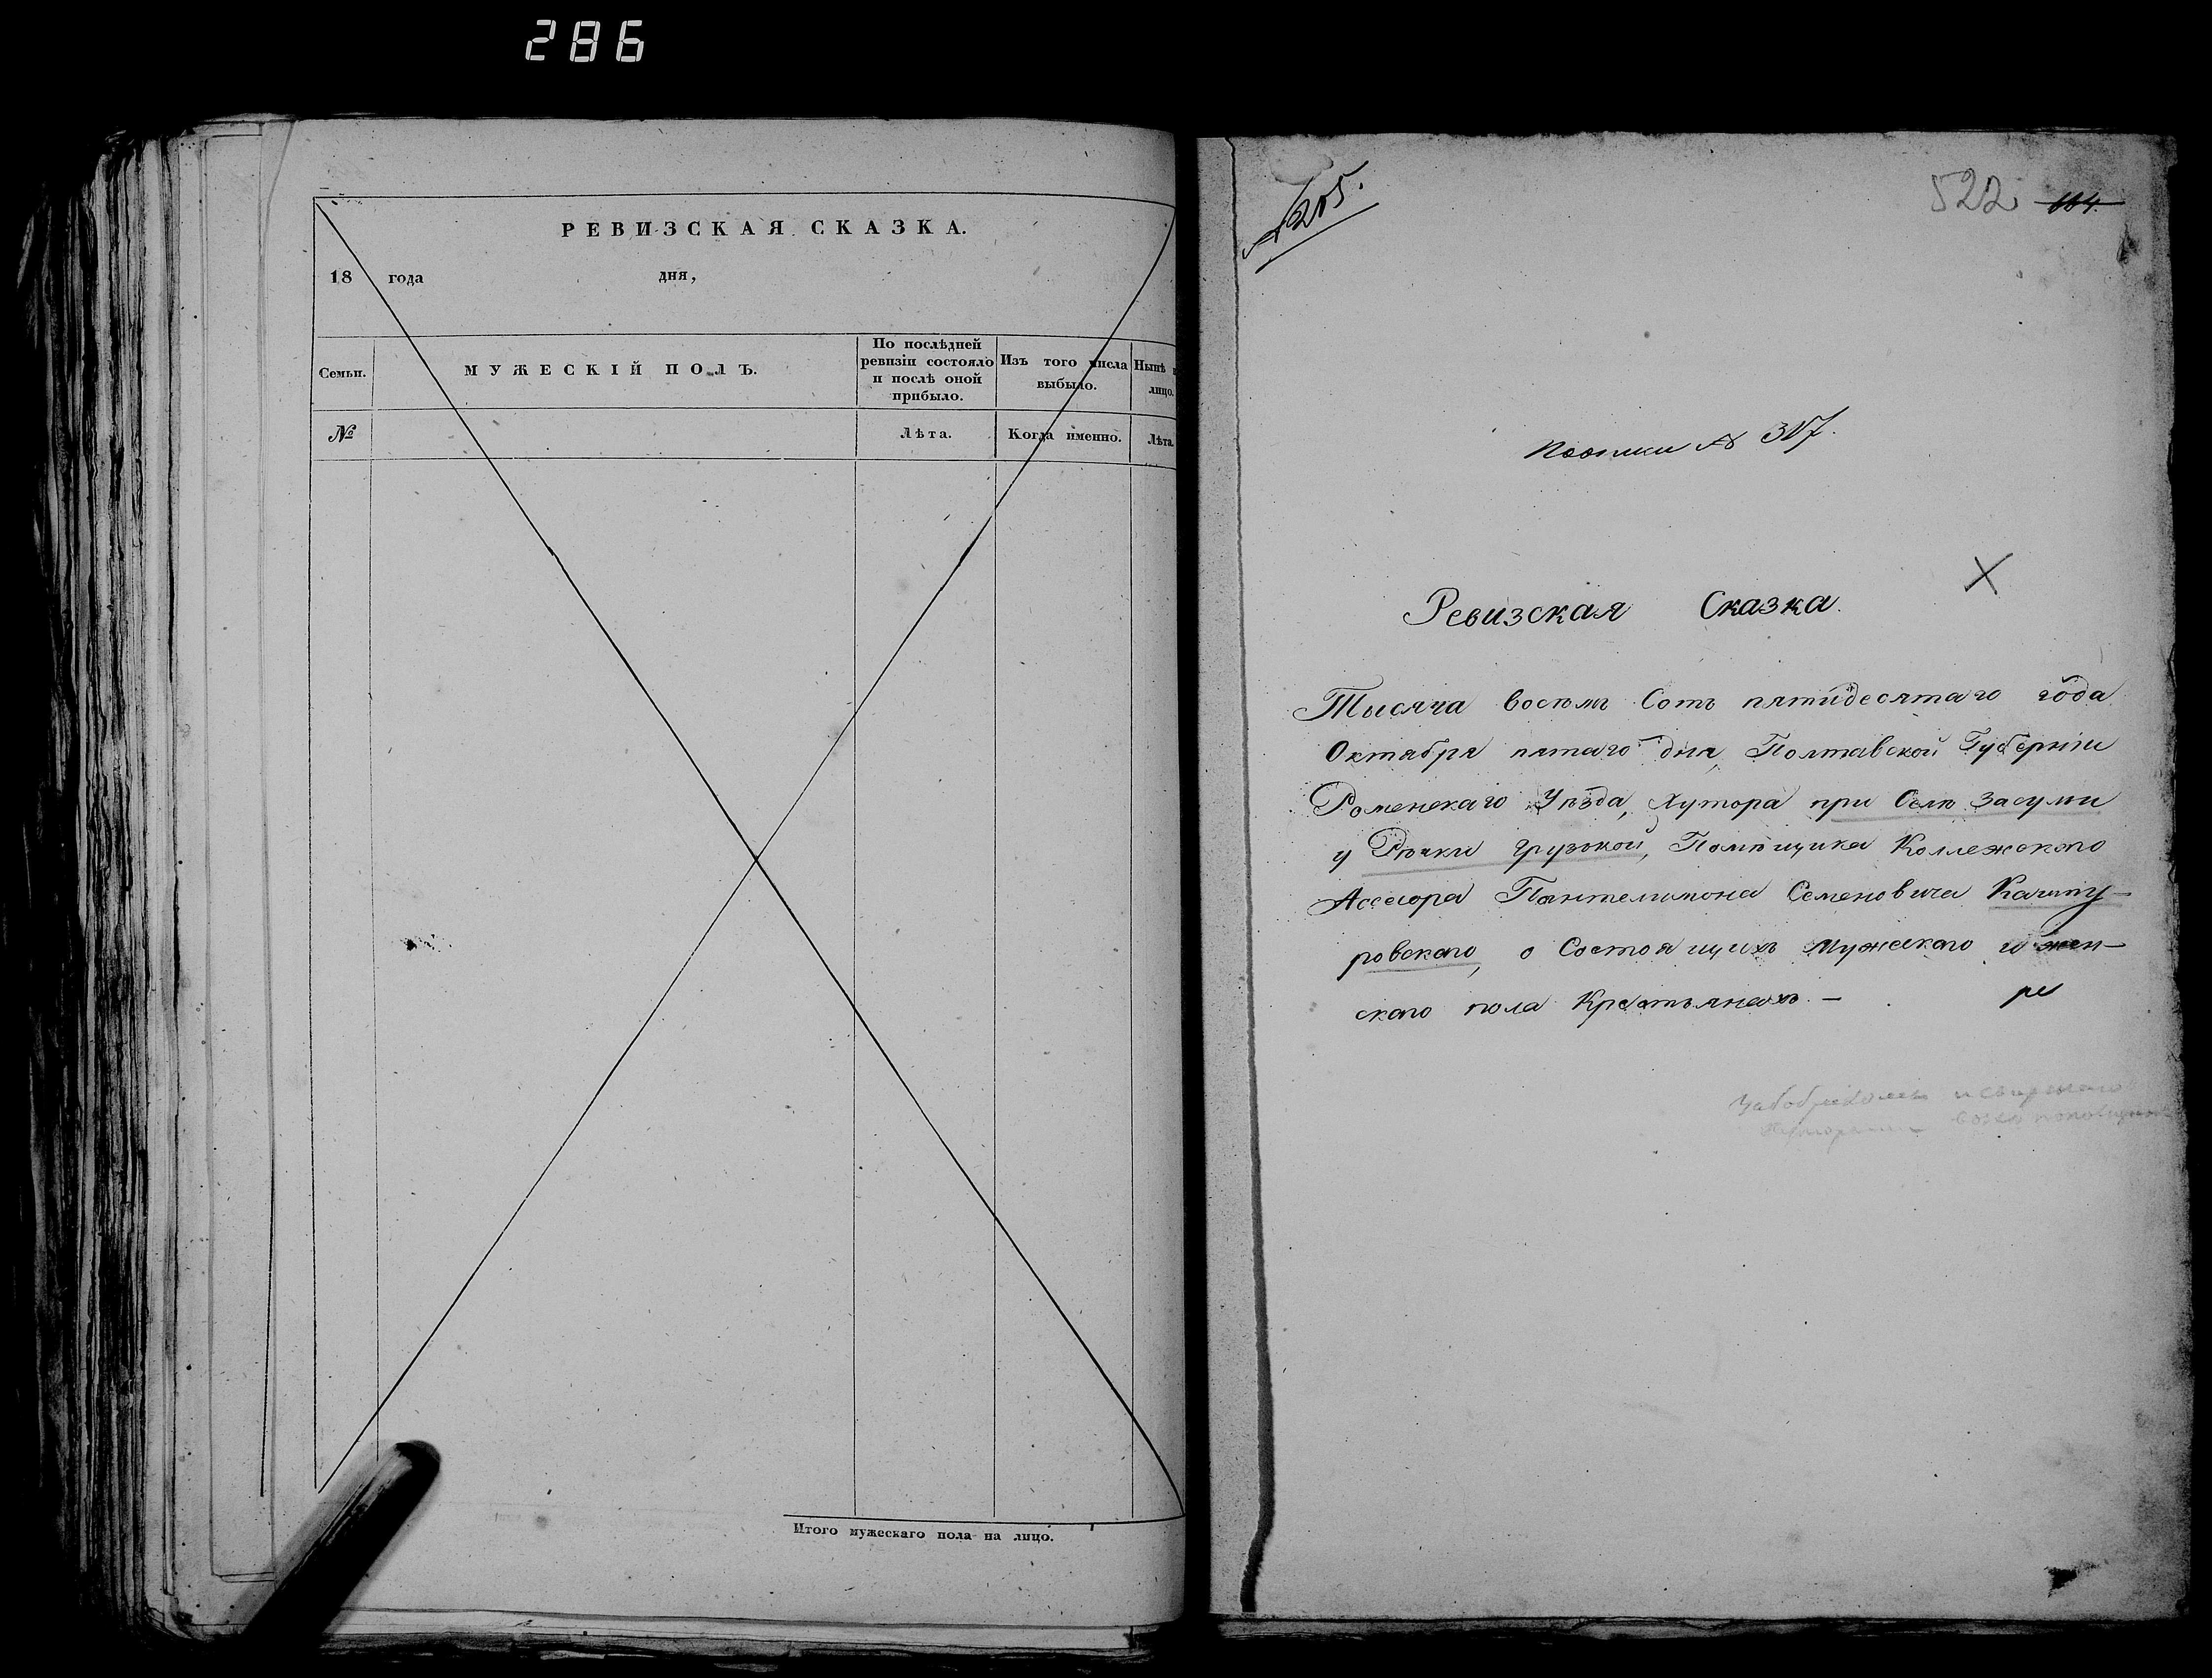 286
РЕВИЗСКАЯ СКАЗКА.
18 года дня,
Семьи.
МУЖЕСКІЙ ПОЛЪ.
По послѣдней
ревизіи состояло
и послѣ оной
прибыло.
Изъ того числа
выбыло.
Нынѣ
лицо.
№
Лѣта.
Когда именно.
Лѣта.
Итого мужескаго пола на лицо.
205.
522 664.
№ 317.
Ревизская Сказка.
Тысяча восемь Сотъ пятидесятаго года
Октября пятаго дня, Полтавской Губерніи
Роменскаго Уѣзда, Хутора при Селѣ Засули
у Рѣчки Грузкой, Помѣщика Коллежскаго
Ассесора Пантелимона Семеновича Качму-
ровскаго, о Состоящихъ Мужескаго и жен-
скаго пола Крестьянахъ. —